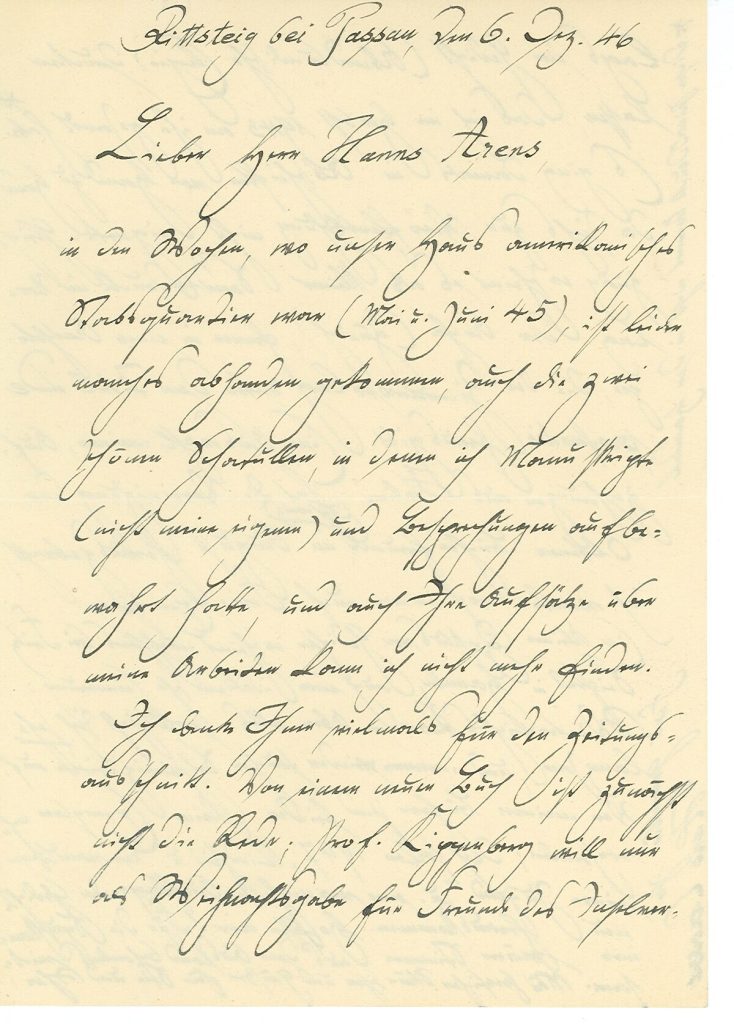 Rittsteig bei Passau, den 6. Dez. 46
Lieber Herr Hanns Arens,
in den Wochen, wo unser Haus amerikanisches
Stabsquartier war (Mai u. Juni 45), ist leider
manches abhanden gekommen, auch die zwei
schönen Schatullen, in denen ich Manuskripte
(nicht meine eigenen) und Besprechungen aufbe=
wahrt hatte, und auch Ihre Aufsätze über
meine Arbeiten kann ich nicht mehr finden.
Ich danke Ihnen vielmals für den Zeitungs=
ausschnitt. Von einem neuen Buch ist zunächst
nicht die Rede; Prof. Kippenberg will nur
als Weihnachtsgabe für Freunde des Inselver=